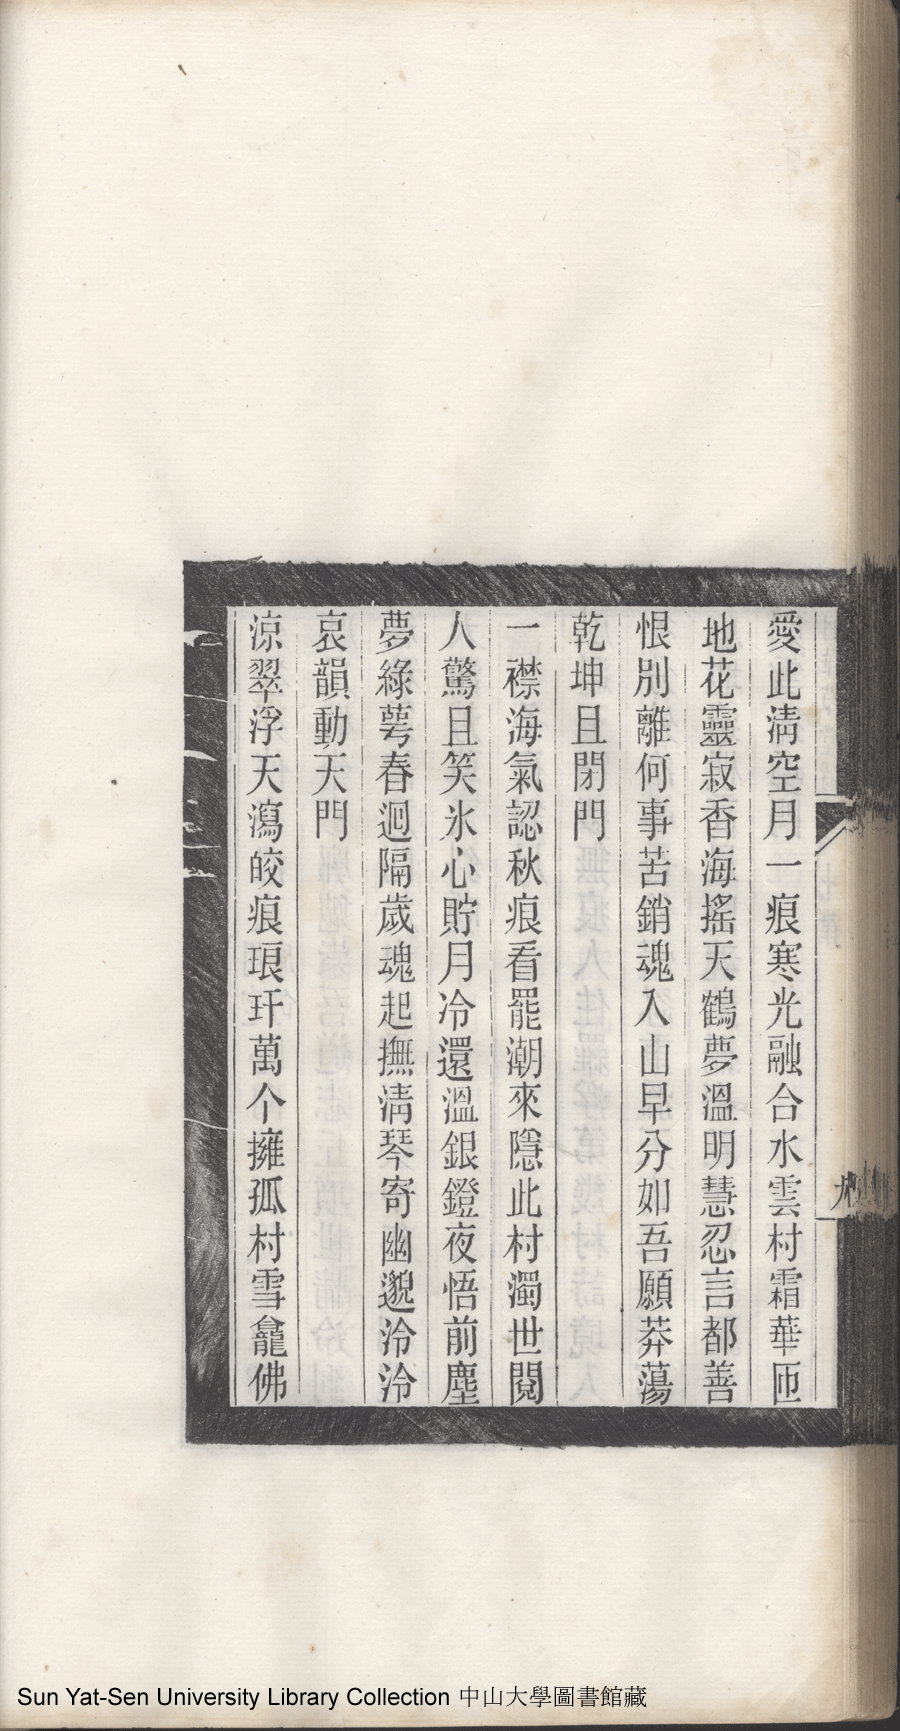 愛此淸空月一痕寒光融合水雲村霜華匝
地花靈寂香海搖天鶴夢溫明慧忍言都善
恨別離何事苦銷魂入山早分如吾願莽蕩
乾坤且閉門
一襟海氣認秋痕看罷潮來隱此村濁世閱
人驚且笑氷心貯月冷還溫銀鐙夜悟前塵
夢綠萼春迴隔歲魂起撫淸琴寄幽邈泠泠
哀韻動天門
涼翠浮天瀉皎痕琅玕萬个擁孤村雪龕佛
九
Sun Yat-Sen University Library Collection 中山大學圖書館藏